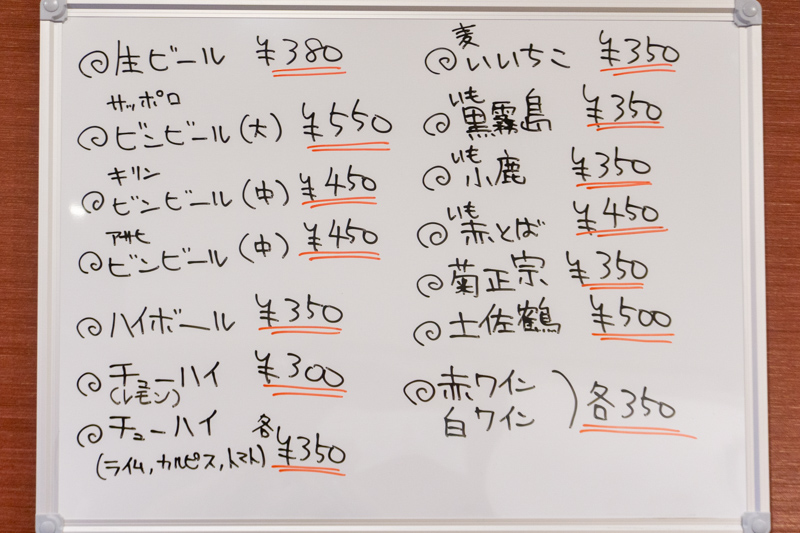 生ビール ¥380
サッポロ
ビンビール(大) ¥550
キリン
ビンビール(中) ¥450
アサヒ
ビンビール(中) ¥450
ハイボール ¥350
チューハイ ¥300
(レモン)
チューハイ 各¥350
(ライム,カルピス,トマト)
麦
いいちこ ¥350
いも
黒霧島 ¥350
いも
小鹿 ¥350
いも
赤とば ¥450
菊正宗 ¥350
土佐鶴 ¥500
赤ワイン
白ワイン
)各350